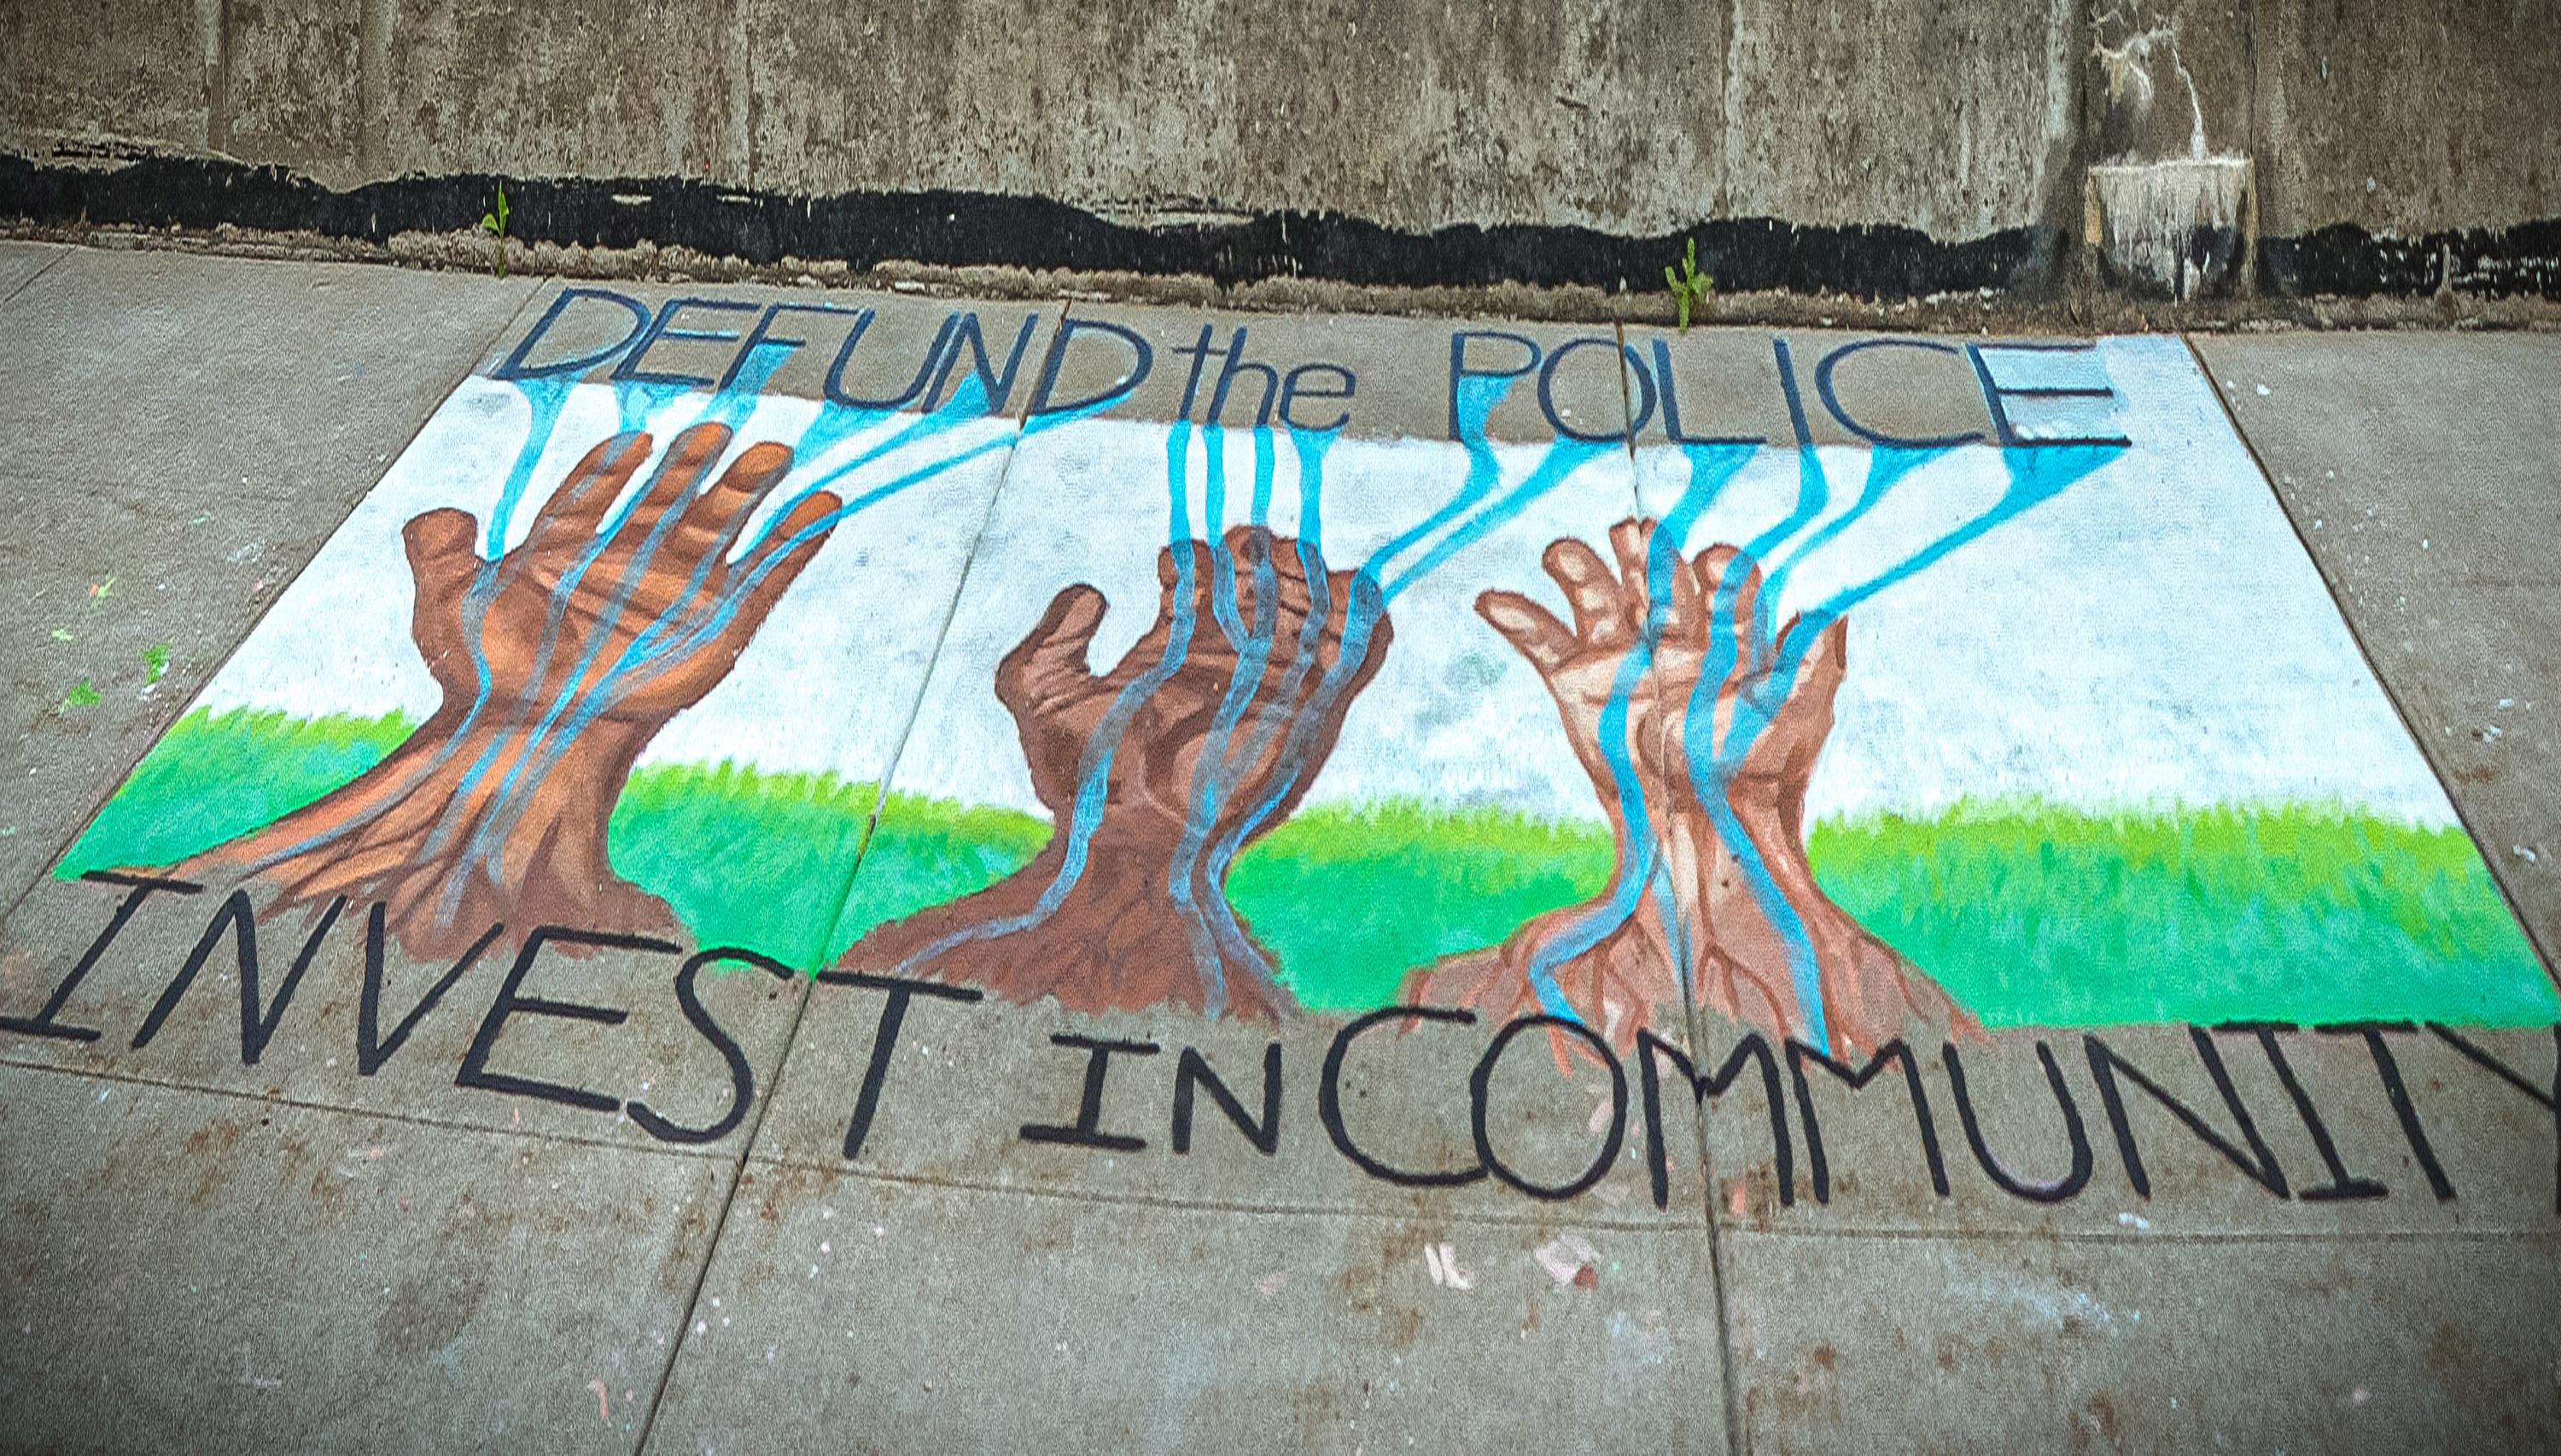 DEFUND the POLICE
INVEST IN COMMUNITY